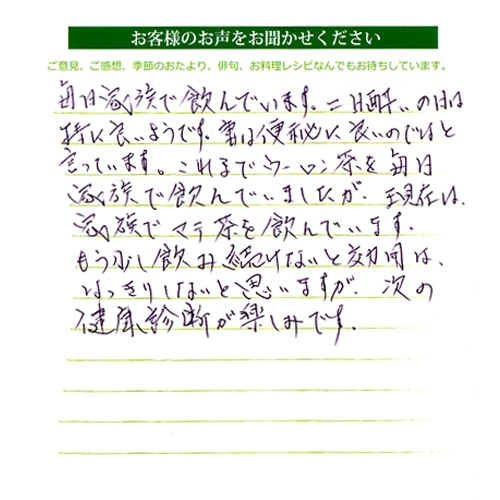 お客様のお声をお聞かせください
ご意見、ご感想、季節のおたより、俳句、お料理レシピなんでもお待ちしています。
毎日家族で飲んでいます。二日酔いの日は
特に良いようです。妻は便秘に良いのではと
言っています。これまでウーロン茶を毎日
家族で飲んでいましたが、現在は、
家族でマテ茶を飲んでいます。
もう少し飲み続けないと効用は、
はっきりしないと思いますが、次の
健康診断が楽しみです。